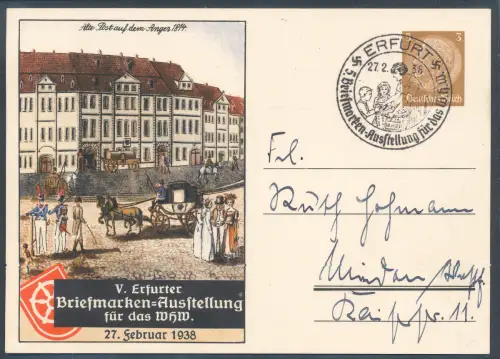 Alte Post auf dem Anger 1814.
V. Erfurter
Briefmarken-Ausstellung
für das WHW.
27. Februar 1938
ERFURT
27.2.38
5. Briefmarken-Ausstellung für das W.H.W.
3
Deutsches Reich
Frl.
Ruth Hofmann
Minden Westf.
Kaiserstr. 11.